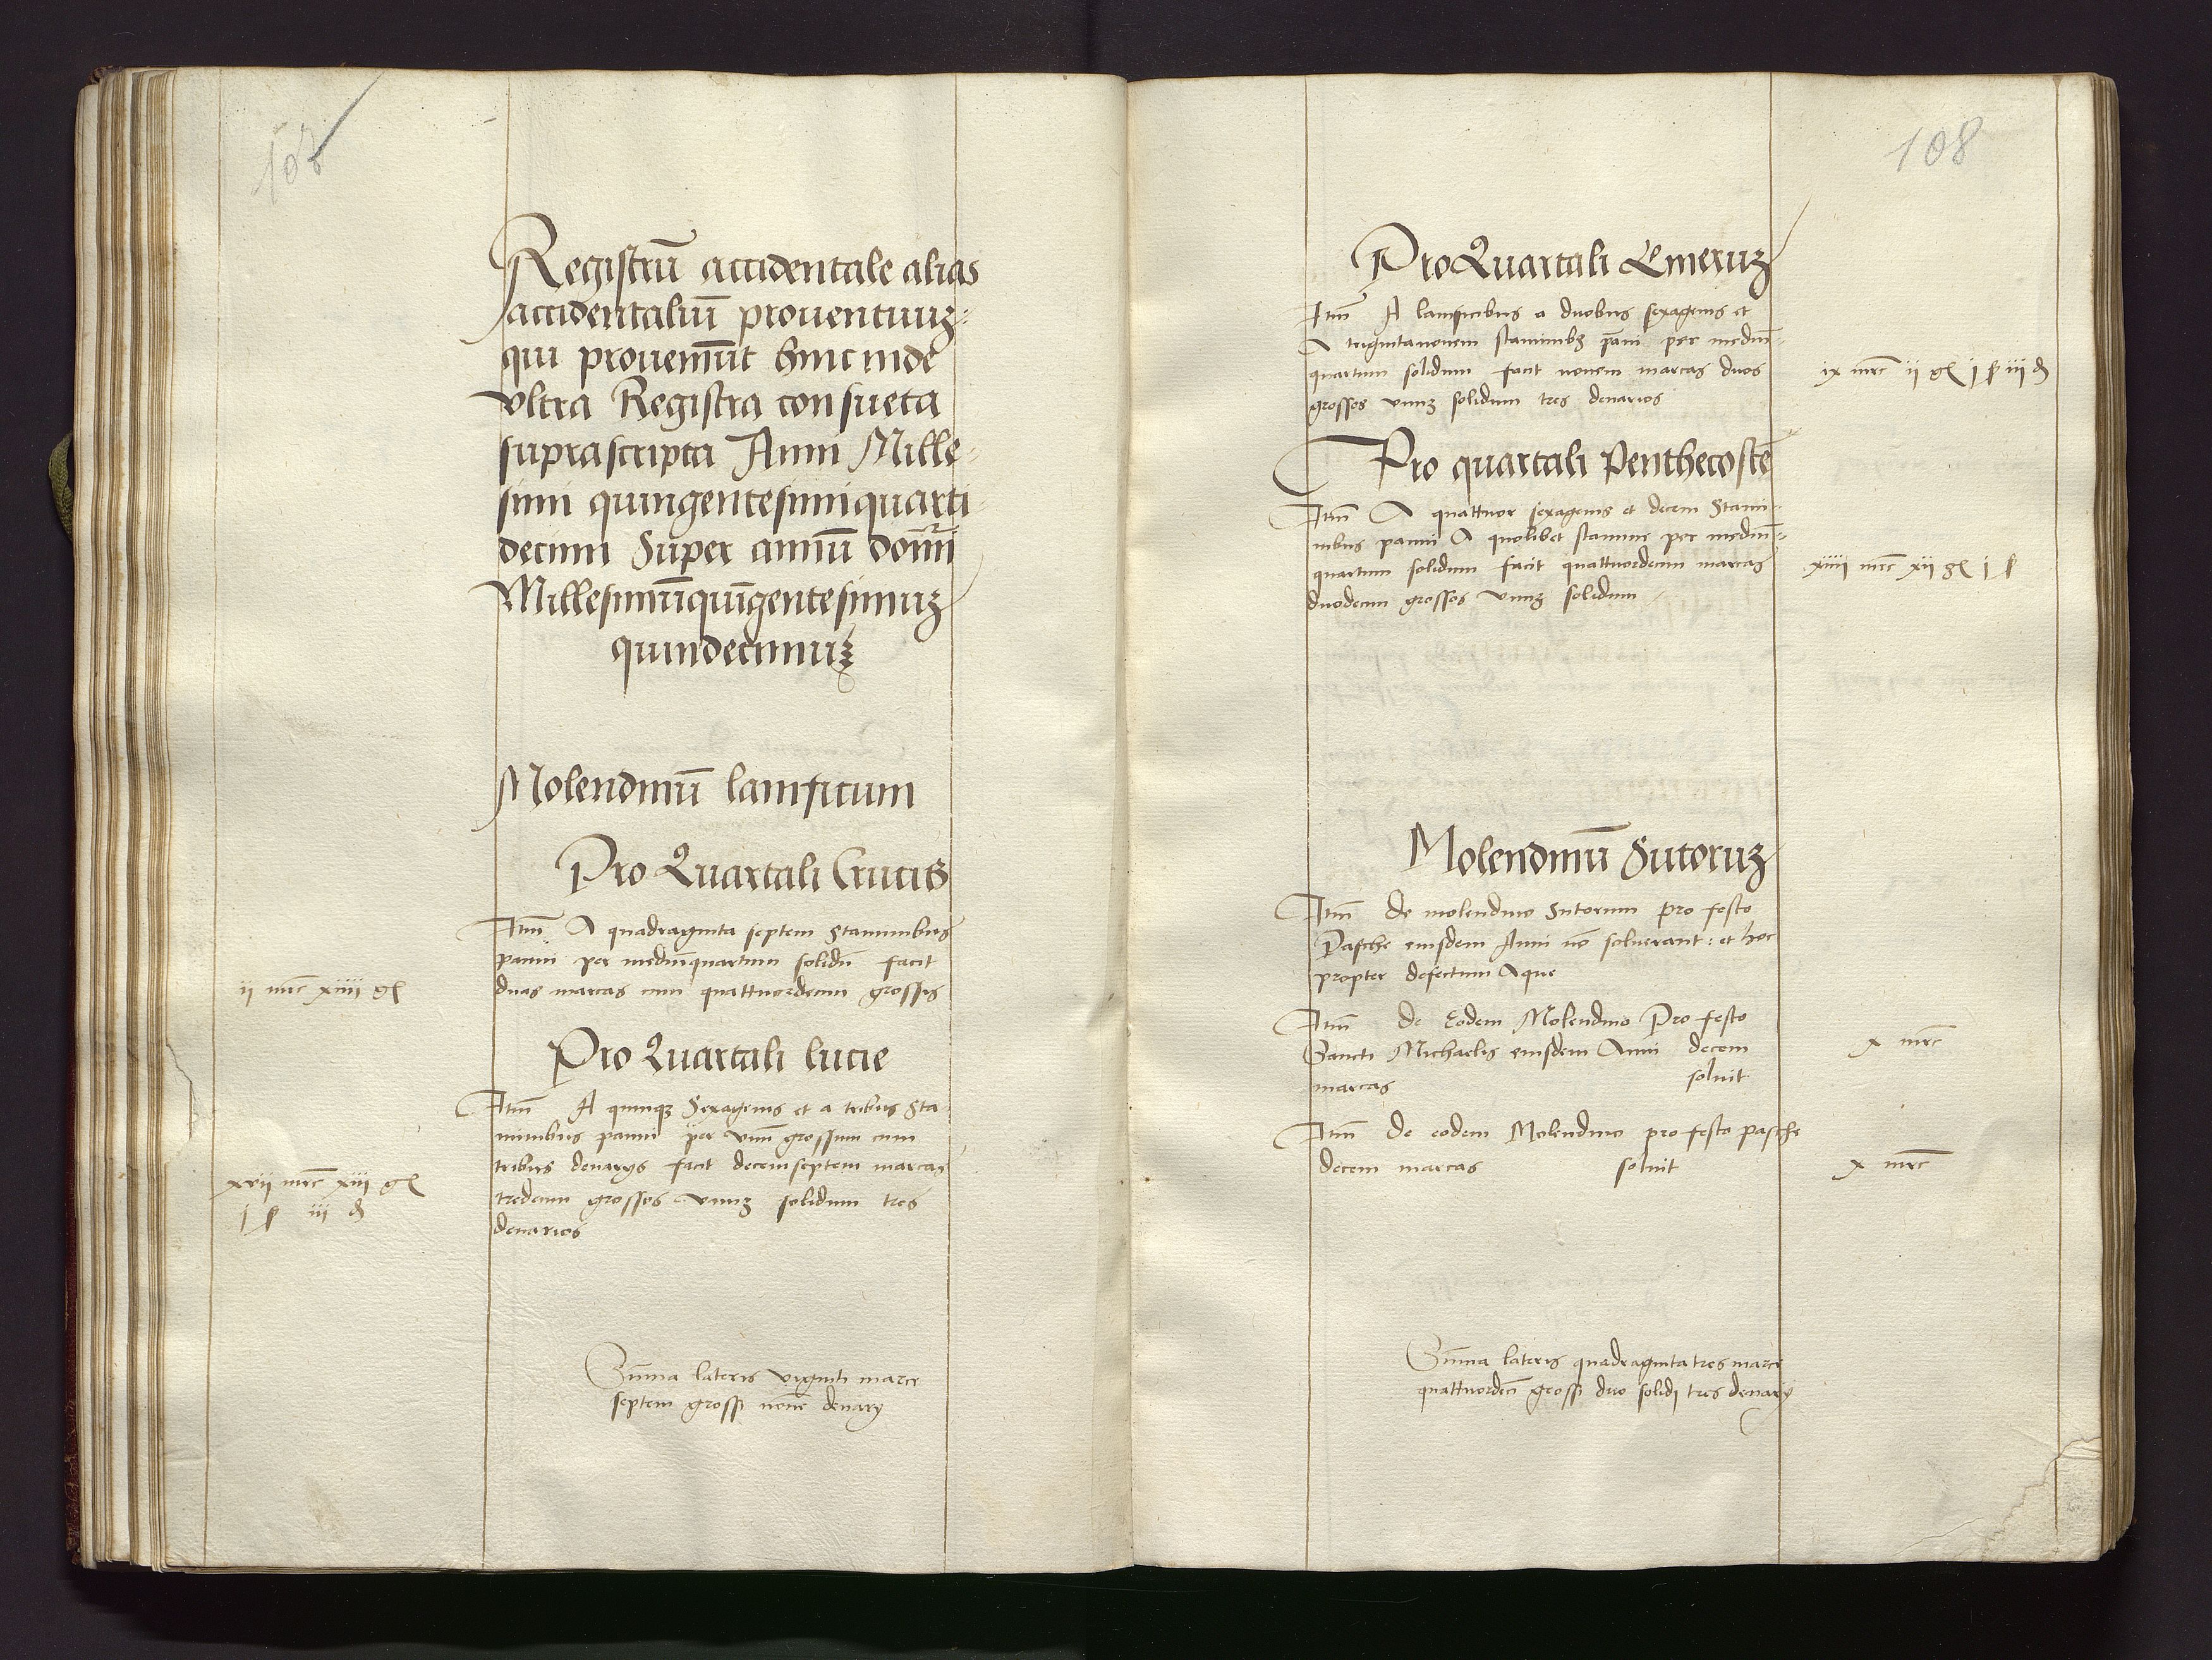 Registrū accidentale alias
accidentaliū prouentuuꝫ
qui proueniūt hinc inde
vltra Registra consueta
suprascripta Anni Mille-
simi quingentesimiquarti
decimi Super annū domī
Millesimūquīgentesimuꝫ
quindecimuꝫ
Molendinū lanificum
Pro Quartali Crucis
Itm̄ A quadraginta septem Staminibus
panni per mediūquartum solidū facit
ii mrc xiiii gl
duas marcas cum quattuordecim grossis
Pro Quartali lucie
Itm̄ A quinqꝫ Sexagenis et a tribus Sta-
minibus panni per vnū grossum cum
tribus denarijs facit decemseptem marcas
xvii mrc xiii gl
tredecim grossos vnuꝫ solidum tres
j ß iii d
denarios
Sūma lateris viginti marce
septem grossi nouē denarij
108
Pro Quartali Cineruꝫ
Itm̄ A lanificibus a duobus sexagenis et
A trigintanouem staminibꝫ pāni per mediū-
quartum solidum facit nouem marcas duos
ix mrc ii gl j ß iii d
grossos vnuꝫ solidum tres denarios
Pro quartali Penthecostē
Itm̄ A quattuor sexagenis et decem Stami-
nibus panni A quolibet stamine per mediū-
quartum solidum facit quattuordecim marcas
xiiii mrc xii gl j ß
duodecim grossos vnuꝫ solidum
Molendinū Sutoruꝫ
Itm̄ de molendino Sutorum pro festo
Pasche eiusdem Anni nō soluerant: et hoc
propter defectum Aque
Itm̄ de Eodem Molendino Pro festo
Sancti Michaelis eiusdem Anni decem
x mrc
marcas soluit
Itm̄ de eodem Molendino pro festo pasche
decem marcas soluit
x mrc
Sūma lateris quadragintatres marce
quattuordecī grossi duo solidi tres denarij